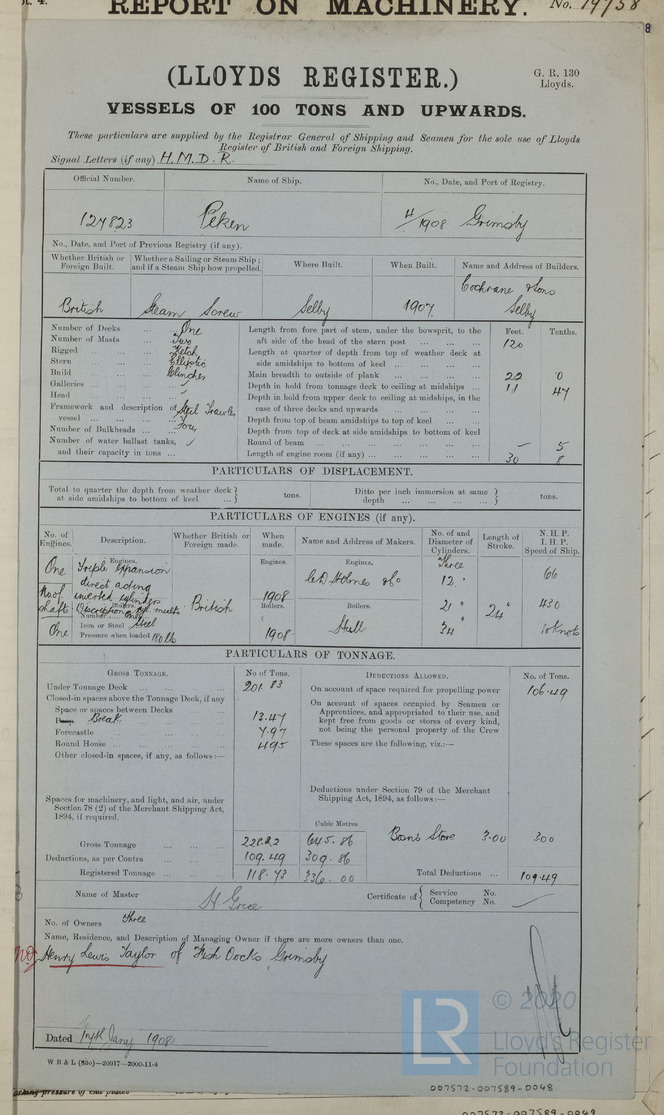 REPORT ON MACHINERY. No. 19758
8
(LLOYDS REGISTER.)
G. R. 130
Lloyds.
VESSELS OF 100 TONS AND UPWARDS.
These particulars are supplied by the Registrar General of Shipping and Seamen for the sole use of Lloyds
Register of British and Foreign Shipping.
Signal Letters (if any) H.M.D.R.
Official Number. Name of Ship. No., Date, and Port of Registry.
127823 Peken 4/1908 Grimsby
No., Date, and Port of Previous Registry (if any).
Whether British or Foreign Built. Whether a Sailing or Steam Ship; and if a Steam Ship how propelled. Where Built. When Built. Name and Address of Builders.
British Steam Screw Selby 1907 Cochrane & Sons Selby
Number of Decks One
Number of Masts Two
Rigged Ketch
Stern Elliptic
Build Clincher
Galleries
Head
Framework and description of vessel Steel Trawler
Number of Bulkheads Four
Number of water ballast tanks, and their capacity in tons
Feet. Tenths.
Length from fore part of stem, under the bowsprit, to the aft side of the head of the stern post 120
Length at quarter of depth from top of weather deck at side amidships to bottom of keel
Main breadth to outside of plank 22 0
Depth in hold from tonnage deck to ceiling at midships 11 47
Depth in hold from upper deck to ceiling at midships, in the case of three decks and upwards
Depth from top of beam amidships to top of keel
Depth from top of deck at side amidships to bottom of keel
Round of beam – 5
Length of engine room (if any) 30 8
PARTICULARS OF DISPLACEMENT.
Total to quarter the depth from weather deck at side amidships to bottom of keel tons. Ditto per inch immersion at same depth tons.
PARTICULARS OF ENGINES (if any).
No. of Engines. Description. Whether British or Foreign made. When made. Name and Address of Makers. No. of and Diameter of Cylinders. Length of Stroke. N.H.P. I.H.P. Speed of Ship.
Engines. Engines. Engines. Three
One Triple Expansion direct acting inverted cylinders British 1908 C D Holmes & Co 12" 66
No of shafts Description Boilers. Boilers. 21" 24" 430
Number One
One Iron or Steel Steel 1908 Hull 34" 10 Knots
Pressure when loaded 180 lb
PARTICULARS OF TONNAGE.
GROSS TONNAGE. No of Tons. DEDUCTIONS ALLOWED. No. of Tons.
Under Tonnage Deck 201.83
On account of space required for propelling power 106.49
Closed-in spaces above the Tonnage Deck, if any
Space or spaces between Decks
Break 13.47
Forecastle 7.97
Round House 4.95
Other closed-in spaces, if any, as follows:—
On account of spaces occupied by Seamen or Apprentices, and appropriated to their use, and kept free from goods or stores of every kind, not being the personal property of the Crew
These spaces are the following, viz.:—
Spaces for machinery, and light, and air, under Section 78 (2) of the Merchant Shipping Act, 1894, if required.
Deductions under Section 79 of the Merchant Shipping Act, 1894, as follows:—
Cubic Metres
Gross Tonnage 228.22 645.86
Boans Store 3.00 3.00
Deductions, as per Contra 109.49 309.86
Registered Tonnage 118.73 336.00
Total Deductions 109.49
Name of Master H Grice
Certificate of Service No. Competency No.
No. of Owners three
Name, Residence, and Description of Managing Owner if there are more owners than one.
Henry Lewis Taylor of Fish Docks, Grimsby
Dated Jany 1908
W B & L (830)—20917—2000-11-4
LR © 2020
Lloyd's Register
Foundation
working pressure of end plates
007572-007589-0048
007572-007589-0049